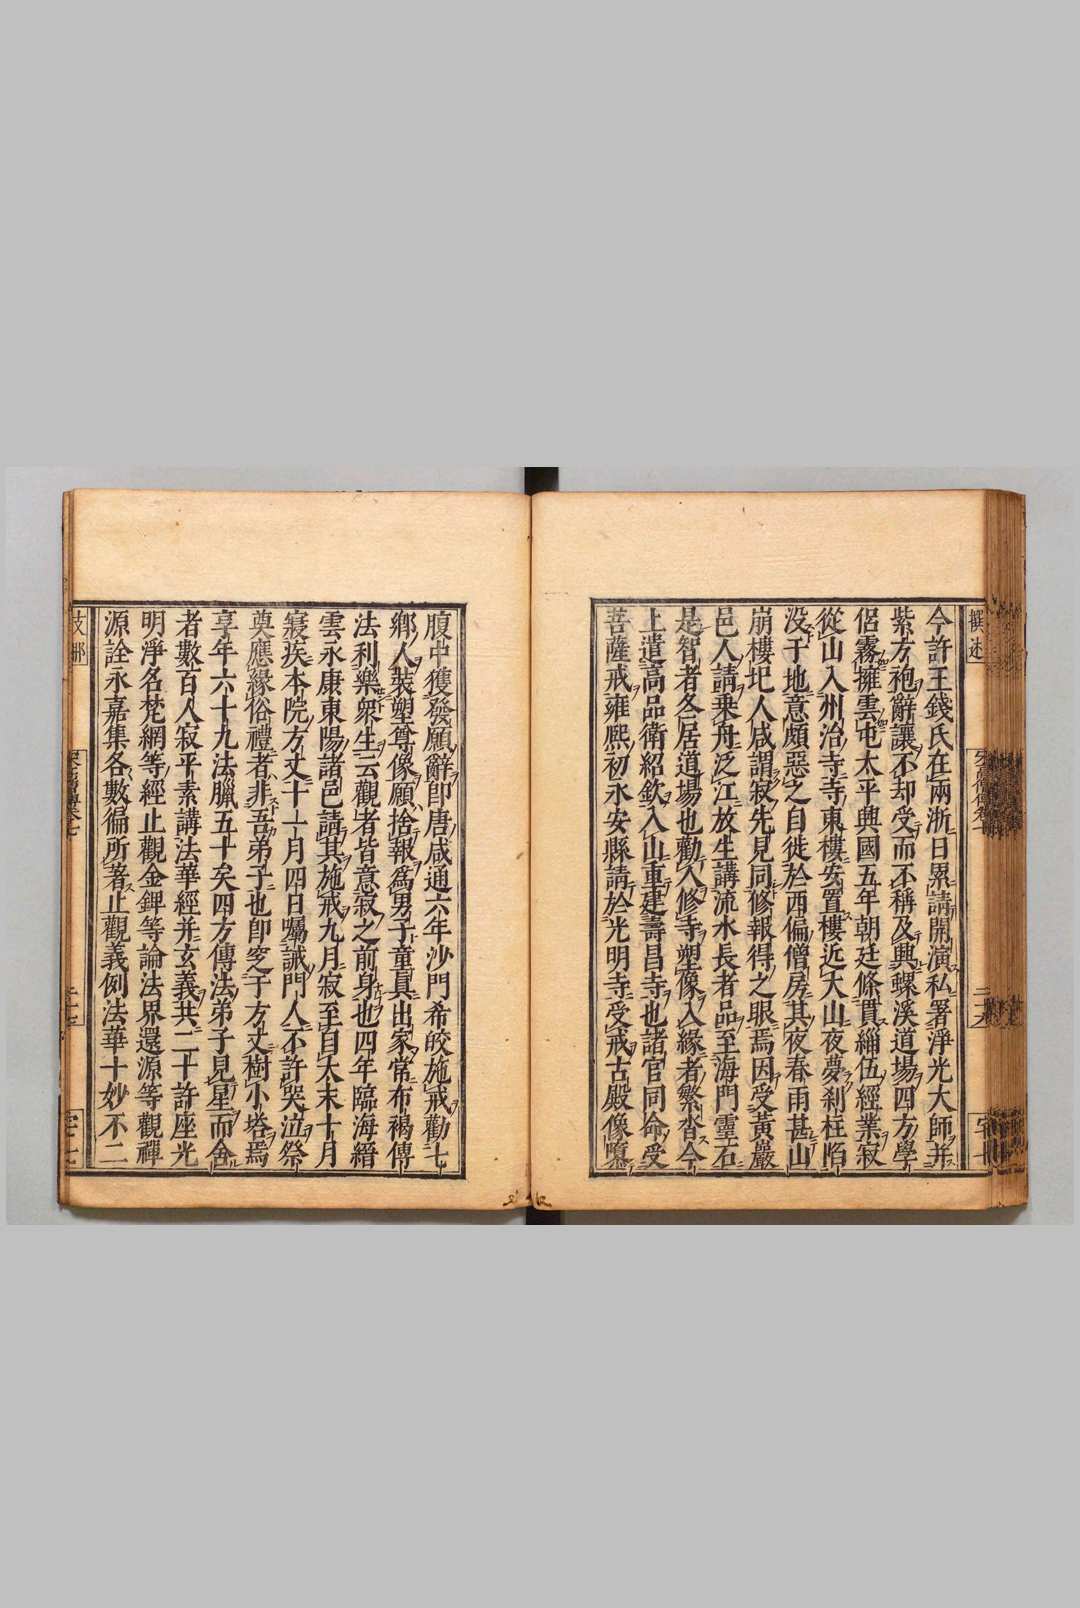 今許王錢氏在兩浙日累請開演私署淨光大師并
紫方袍辭讓不却受而不稱及興螺溪道場四方學
侶霧擁雲屯太平興國五年朝廷條貫緇伍經業寂
從山入州治寺寺東樓安置樓近大山夜夢刹柱陷
没于地意頗惡之自徙於西偏僧房其夜春雨甚山
崩樓圮人咸謂寂先見同修報得之眼焉因受黃巖
邑人請乗舟泛江放生講流水長者品至海門靈石
是智者各居道場也勸人修寺塑像入緣者繁沓今
上遣高品衛紹欽入山重建壽昌寺也諸官同命受
菩薩戒雍熙初永安縣請於光明寺受戒古殿像隳
腹中獲發願辭即唐咸通六年沙門希皎施戒勸七
鄉人裝塑尊像願捨報爲男子童真出家常布褐傳
法利樂衆生云觀者皆意寂之前身也四年臨海縉
雲永康東陽諸邑請其施戒九月寂至自太末十月
寢疾本院方丈十一月四日囑誡門人不許哭泣祭
奠應緣俗禮者非吾弟子也即窆于方丈樹小塔焉
享年六十九法臘五十矣四方傳法弟子見星而舍
者數百人寂平素講法華經并玄義共二十許座光
明淨名梵網等經止觀金錍等論法界還源等觀禪
源詮永嘉集各數徧所著止觀義例法華十妙不二